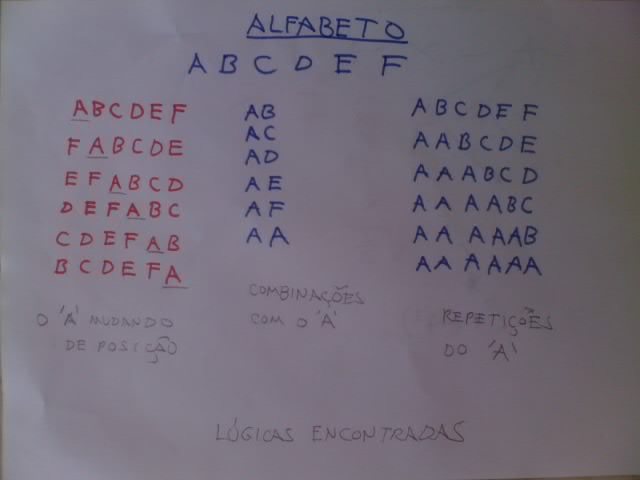 ALFABETO
A B C D E F
A B C D E F
F A B C D E
E F A B C D
D E F A B C
C D E F A B
B C D E F A
O 'A' MUDANDO
DE POSIÇÃO
AB
AC
AD
AE
AF
AA
COMBINAÇÕES
COM O 'A'
A B C D E F
A A B C D E
A A A B C D
A A A A B C
A A A A A B
A A A A A A
REPETIÇÕES
DO 'A'
LÓGICAS ENCONTRADAS